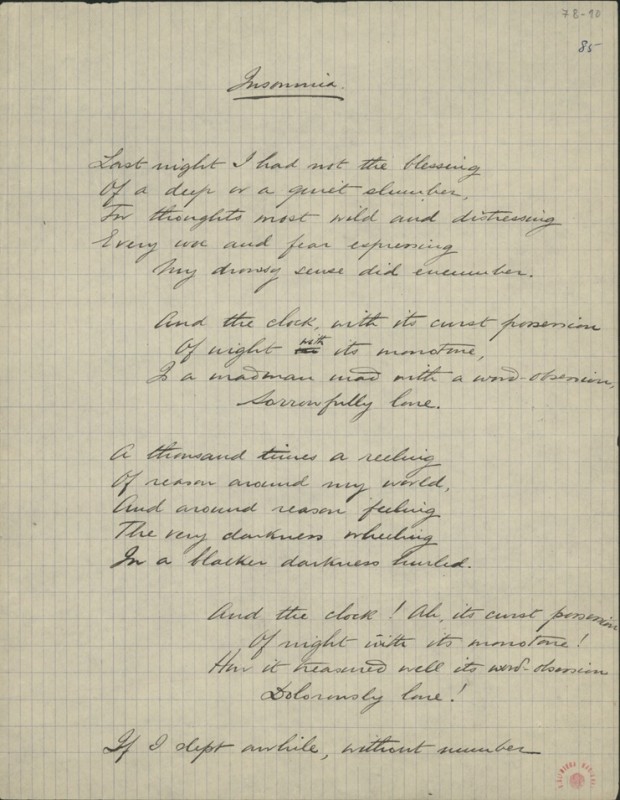 78-90
85
Insomnia.
Last night I had not the blessing
Of a deep or a quiet slumber,
For thoughts most wild and distressing
Every woe and fear expressing
My drowsy sense did encumber.
And the clock, with its curst possession
Of night with its monotone,
Is a madman mad with a word-obsession,
Sorrowfully lone.
A thousand times a reeling
Of reason around my world,
And around reason feeling
The very darkness wheeling
In a blacker darkness hurled.
And the clock! Ah, its curst possession
Of night with its monotone!
How it treasured well its word-obsession
Dolorously lone!
If I slept awhile, without number